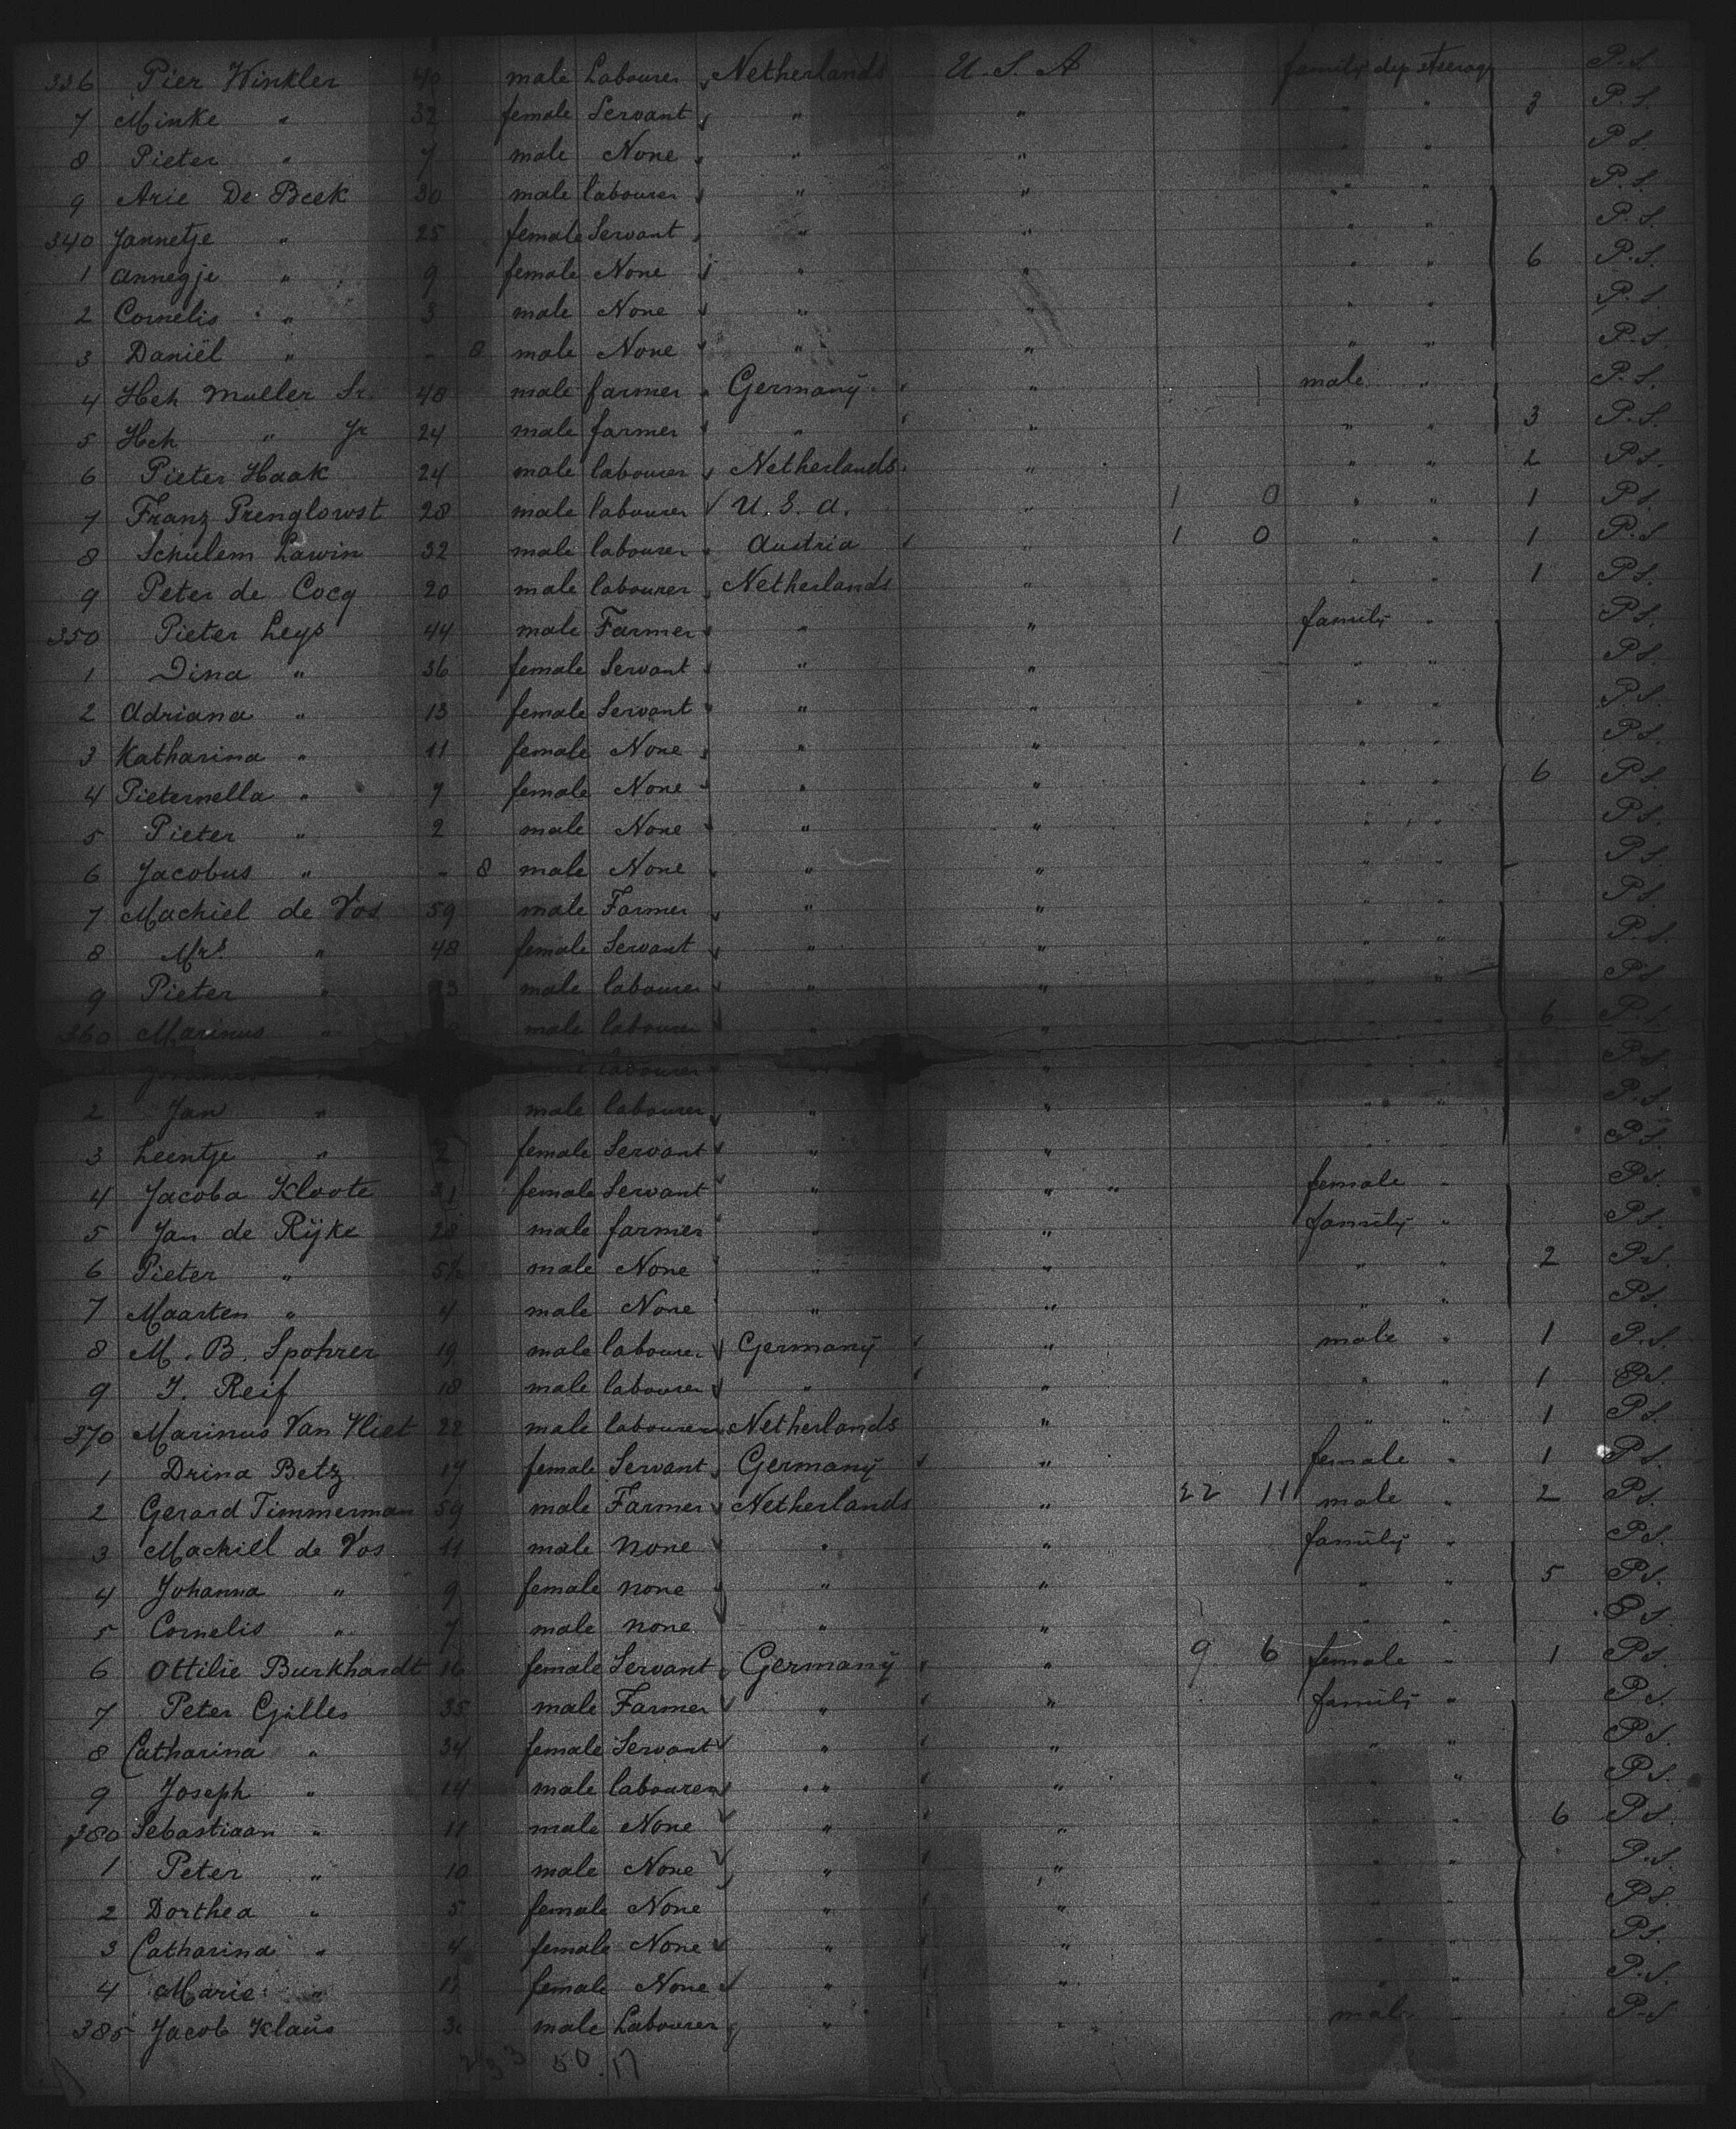 336 Pier Winkler 40 male Labourer Netherlands U. S. A family dep steerage P. S.
7 Minke " 32 female Servant " " " " 3 P. S.
8 Pieter " 7 male None " " " " P S.
9 Arie De Beek 30 male labourer " " " " P. S.
340 Jannetje " 25 female Servant " " " " P. S.
1 Annegje " 9 female None " " " " 6 P. S.
2 Cornelis " 3 male None " " " " P. S.
3 Daniël " - 8 male None " " " " P. S.
4 Hch Muller Sr. 48 male farmer Germany " male " P. S.
5 Hch " Jr 24 male farmer " " " " 3 P. S.
6 Pieter Haak 24 male labourer Netherlands " " " 2 P S.
7 Franz Prenglowst 28 male labourer U. S. A. " 1 0 " " 1 P S.
8 Schulem Lawin 32 male labourer Austria " 1 0 " " 1 P. S
9 Peter de Cocq 20 male labourer Netherlands " " " 1 P S.
350 Pieter Leys 44 male Farmer " " family " P S.
1 Dina " 36 female Servant " " " " P S.
2 Adriana " 13 female Servant " " " " P. S.
3 Katharina " 11 female None " " " " P S.
4 Pieternella " 7 female None " " " " 6 P S.
5 Pieter " 2 male None " " " " P S.
6 Jacobus " - 8 male None " " " " P S.
7 Machiel de Vos 59 male Farmer " " " " P S.
8 Mrs " 48 female Servant " " " " P. S.
9 Pieter " male labourer " " " " P S.
360 Marinus " male labourer " " " " 6 P S.
labourer " " " " P S.
2 Jan " male labourer " " " " P. S.
3 Leentje " female Servant " " " " P S.
4 Jacoba Kloote female Servant " " " female " P S.
5 Jan de Rijke 28 male farmer " " family " P S.
6 Pieter " 5½ male None " " " " 2 P. S.
7 Maarten " 4 male None " " " " P S.
8 M. B. Spohrer 19 male labourer Germany " male " 1 P. S.
9 J. Reif 18 male labourer " " " " 1 P S.
370 Marinus Van Vliet 22 male labourer Netherlands " " " 1 P S.
1 Drina Betz 17 female Servant Germany " female " 1 P S.
2 Gerard Timmerman 59 male Farmer Netherlands " 22 11 male " 2 P S.
3 Machiel de Vos 11 male none " " family " P S.
4 Johanna " 9 female none " " " " 5 P S.
5 Cornelis " 7 male none " " " " P S.
6 Ottilie Burkhardt 16 female Servant Germany " 9 6 female " 1 P S.
7 Peter Gilles 35 male Farmer " " family " P S.
8 Catharina " 34 female Servant " " " " P S.
9 Joseph " 14 male labourer " " " " P S.
380 Sebastiaan " 11 male None " " " " 6 P S.
1 Peter " 10 male None " " " " P. S.
2 Dorthea " 5 female None " " " " P S.
3 Catharina " 4 female None " " " " P S.
4 Marie " female None " " " " P. S.
385 Jacob Klaus male Labourer " " male " P. S
233 50.17